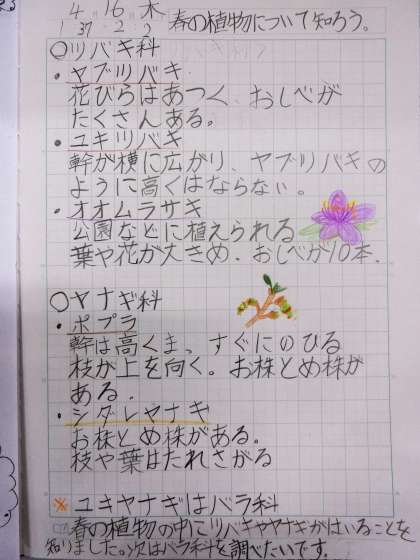 4 16 木
1 37 2 2 春の植物について知ろう。
○ツバキ科
・ヤブツバキ
花びらはあつく、おしべが
たくさんある。
・ユキツバキ
幹が横に広がり、ヤブツバキの
ように高くはならない。
・オオムラサキ
公園などに植えられる
葉や花が大きめ.おしべが10本.
○ヤナギ科
・ポプラ
幹は高くま、すぐにのびる
枝が上を向く。お株とめ株が
ある.
・シダレヤナギ
お株とめ株がある。
枝や葉はたれさがる
※ユキヤナギはバラ科
春の植物の中にツバキやヤナギがはいることを
知りました。次はバラ科を調べたいです。